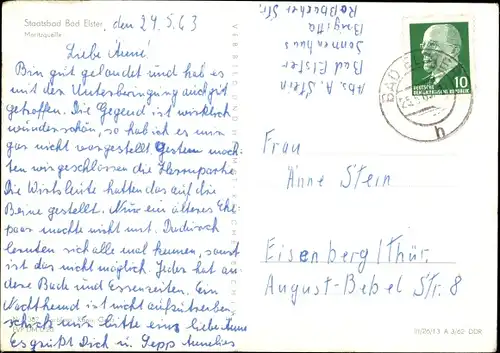 Staatsbad Bad Elster
Moritzquelle
den 24.5.63
Liebe Änne!
Bin gut gelandet und hab es
mit der Unterbringung auch gut
getroffen. Die Gegend ist wirklich
wunderschön, so hab ich es mir
gar nicht vorgestellt. Gestern mach-
ten wir geschlossen die Herrenpartie
Die Wirtsleute hatten das auf die
Beine gestellt. Nur ein älteres Ehe-
paar machte nicht mit. Dadurch
lernten sich alle mal kennen, sonst
ist das nicht möglich. Jeder hat an-
dere Bade und Essenzeiten. Ein
Nachthemd ist nicht aufzutreiben
schick mir bitte eins liebe Änne
Es grüßt Dich u. Sepp Annelies
Abs. A. Stein
Bad Elster
Sonnenhaus
Brigitta
Roßbacher Str.
DEUTSCHE
DEMOKRATISCHE REPUBLIK
10
BAD ELSTER
h
Frau
Änne Stein
Eisenberg/Thür.
August-Bebel Str. 8
III/26/13 A 3/62 DDR